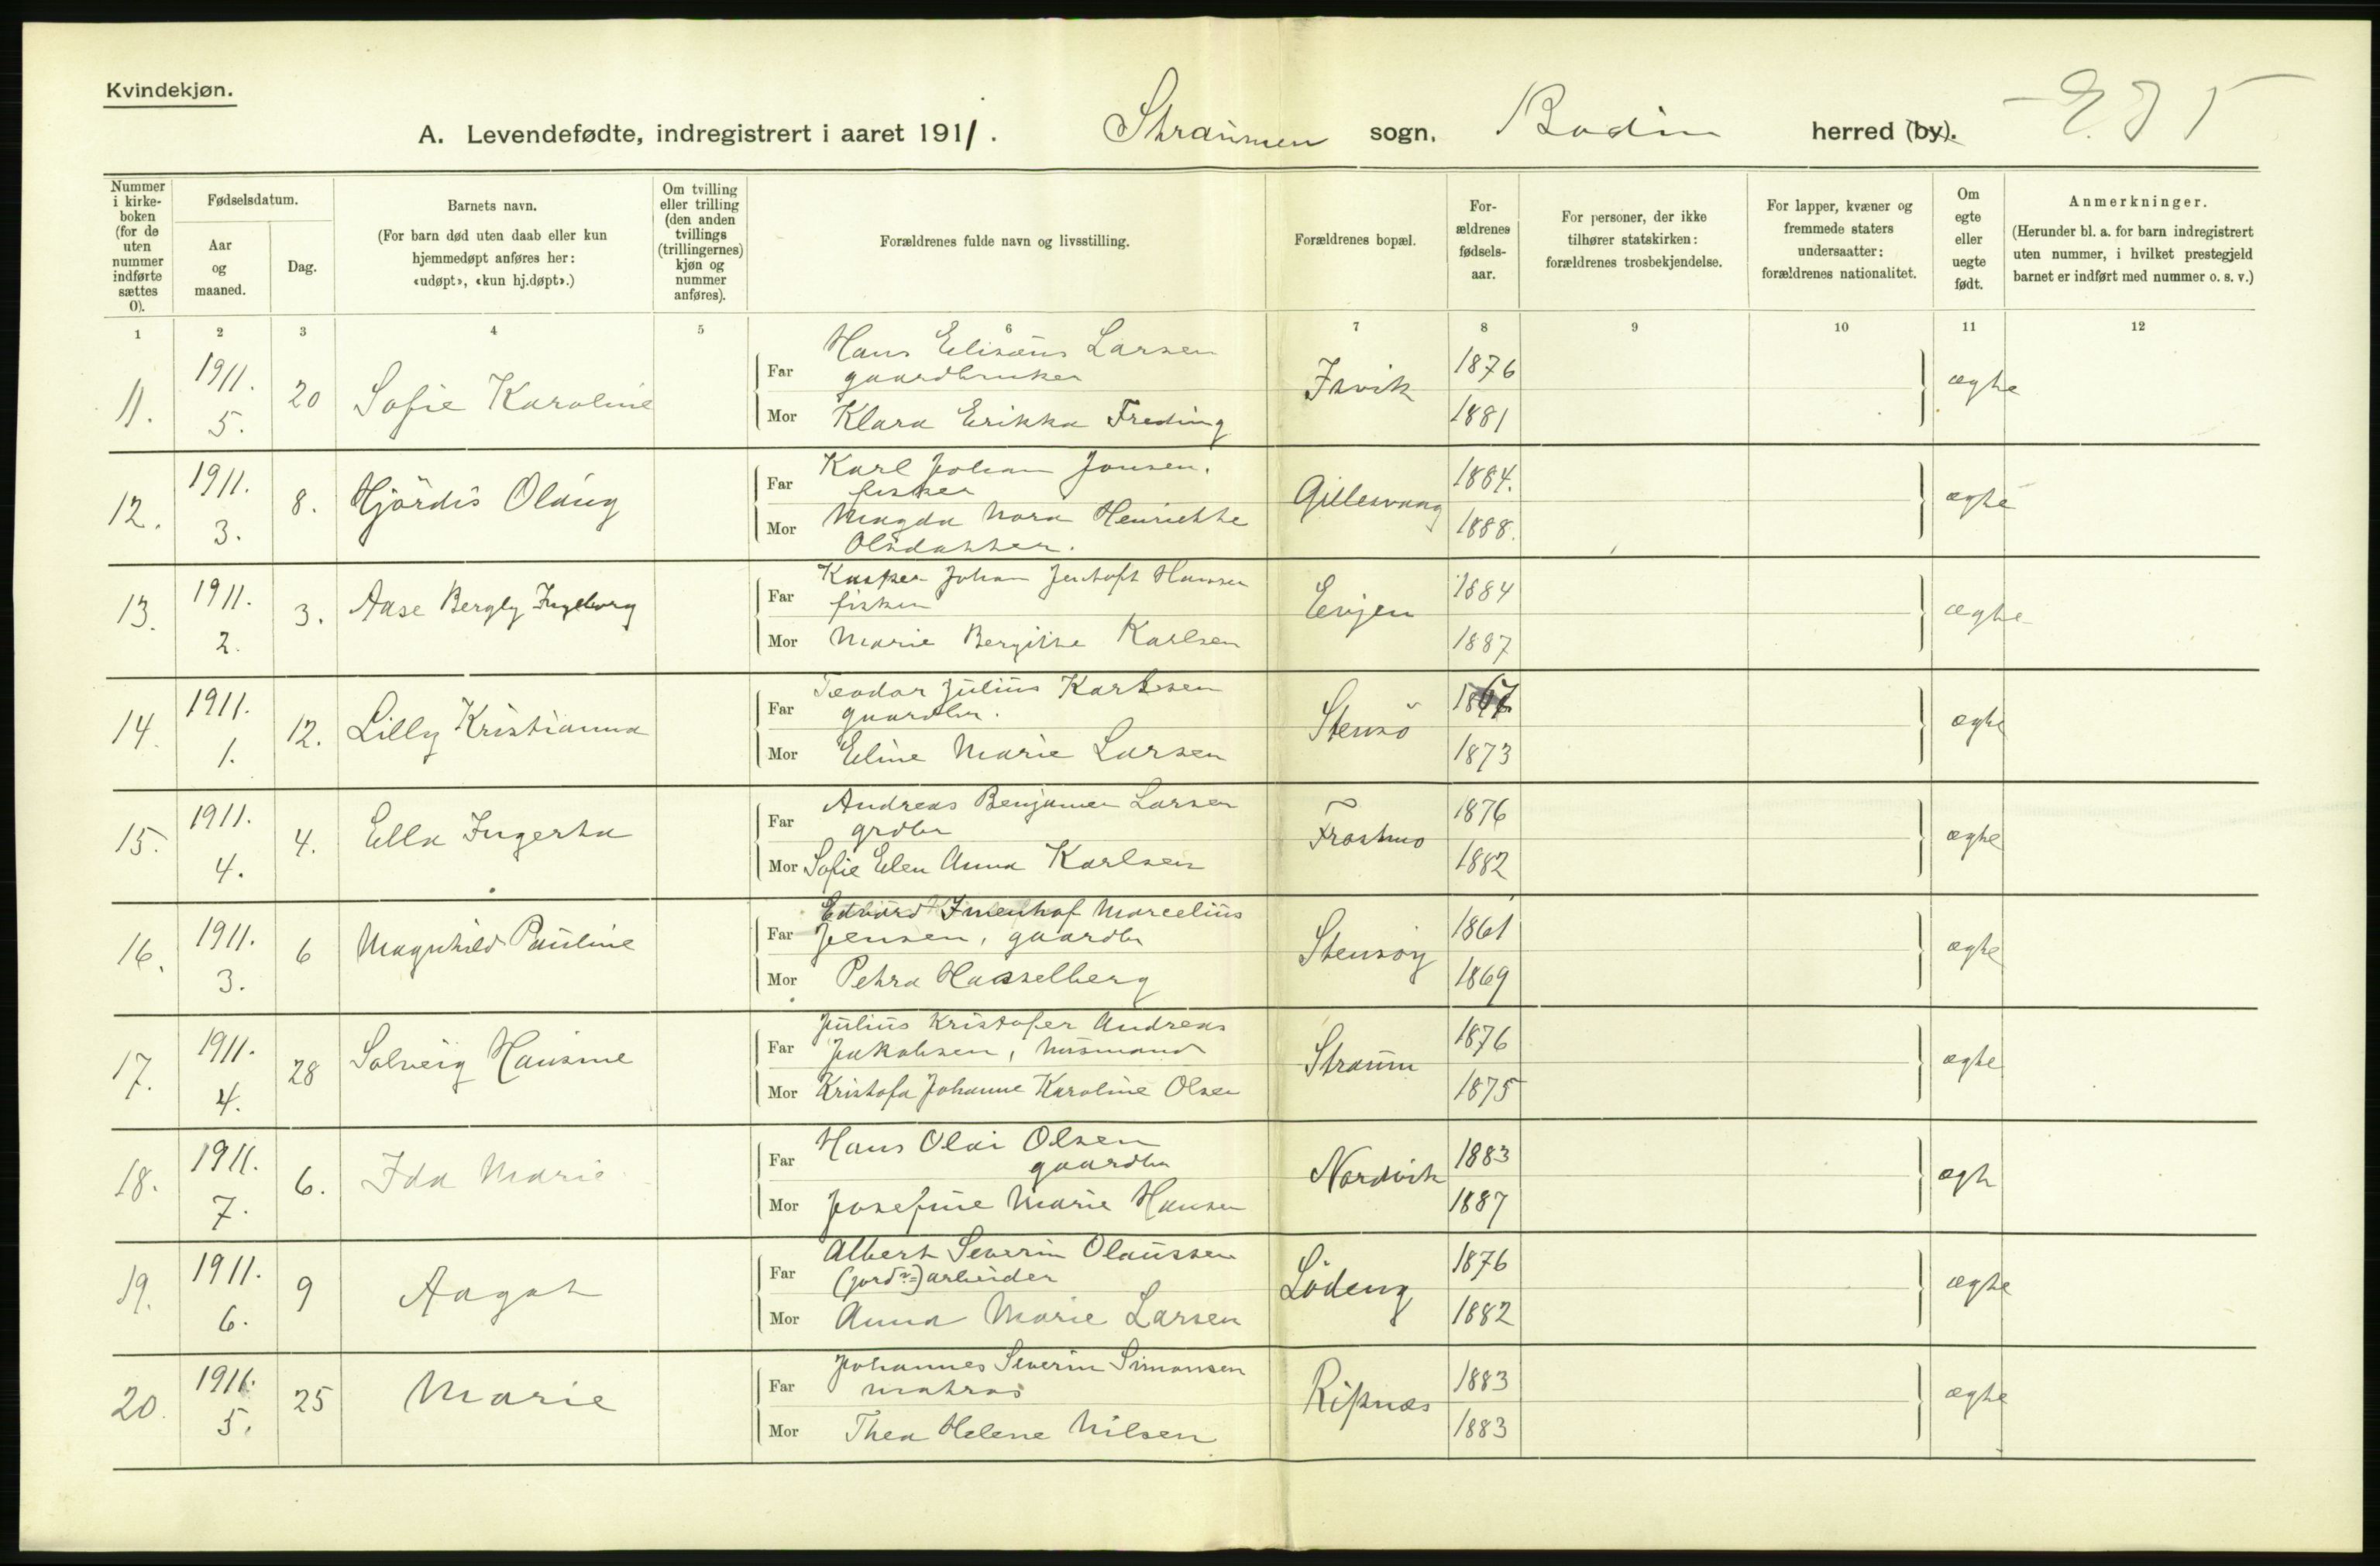 Kvindekjøn.
A. Levendefødte, indregistrert i aaret 1911. Straumen sogn, Bodin herred (by).
Nummer i kirkeboken (for de uten nummer indførte sættes 0).
Fødselsdatum.
Aar og maaned.
Dag.
Barnets navn.
(For barn død uten daab eller kun hjemmedøpt anføres her: «udøpt», «kun hj.døpt».)
Om tvilling eller trilling (den anden tvillings (trillingernes) kjøn og nummer anføres).
Forældrenes fulde navn og livsstilling.
Forældrenes bopæl.
Forældrenes fødselsaar.
For personer, der ikke tilhører statskirken: forældrenes trosbekjendelse.
For lapper, kvæner og fremmede staters undersaatter: forældrenes nationalitet.
Om egte eller uegte født.
Anmerkninger.
(Herunder bl. a. for barn indregistrert uten nummer, i hvilket prestegjeld barnet er indført med nummer o. s. v.)
1 2 3 4 5 6 7 8 9 10 11 12
11. 1911. 5. 20 Sofie Karoline
Far Hans Elisæus Larsen gaardbruker
Mor Klara Erikka Freding
Isvik 1876 1881 ægte
12. 1911. 3. 8. Hjördis Olaug
Far Karl Johan Jonsen. fisker
Mor Magda Nora Henriette Olsdatter.
Gillesvaag 1884. 1888. ægte
13. 1911. 2. 3. Aase Bergly Ingeborg
Far Kasper Johan Jentoft Hansen fisker
Mor Marie Bergitte Karlsen
Evjen 1884 1887 ægte
14. 1911. 1. 12. Lilly Kristianna
Far Teodor Julius Karlsen gaardbr.
Mor Eline Marie Larsen
Stensö 1873 ægte
15. 1911. 4. 4. Ella Ingerta
Far Andreas Benjamen Larsen grdbr
Mor Sofie Elen Anna Karlsen
Frostmo 1876 1882 ægte
16. 1911. 3. 6 Magnhild Pauline
Far Edvard Imenhof Marcelius Jensen, gaardbr
Mor Petra Hasselberg
Stensöy 1861 1869 ægte
17. 1911. 4. 28 Solveig Hausine
Far Julius Kristofer Andreas Jakobsen, husmand
Mor Kristofa Johanne Karoline Olsen
Straum 1876 1875 ægte
18. 1911. 7. 6. Ida Marie
Far Hans Olai Olsen gaardbr
Mor Josefine Marie Hansen
Nordvik 1883 1887 ægt
19. 1911. 6. 9 Aagot
Far Albert Severin Olaussen (jord?=) arbeider
Mor Anna Marie Larsen
Lödeng 1876 1882 ægte
20. 1911. 5. 25 Marie
Far Johannes Severin Simonsen matros
Mor Thea Helene Nilsen
Ripnæs 1883 1883 ægte